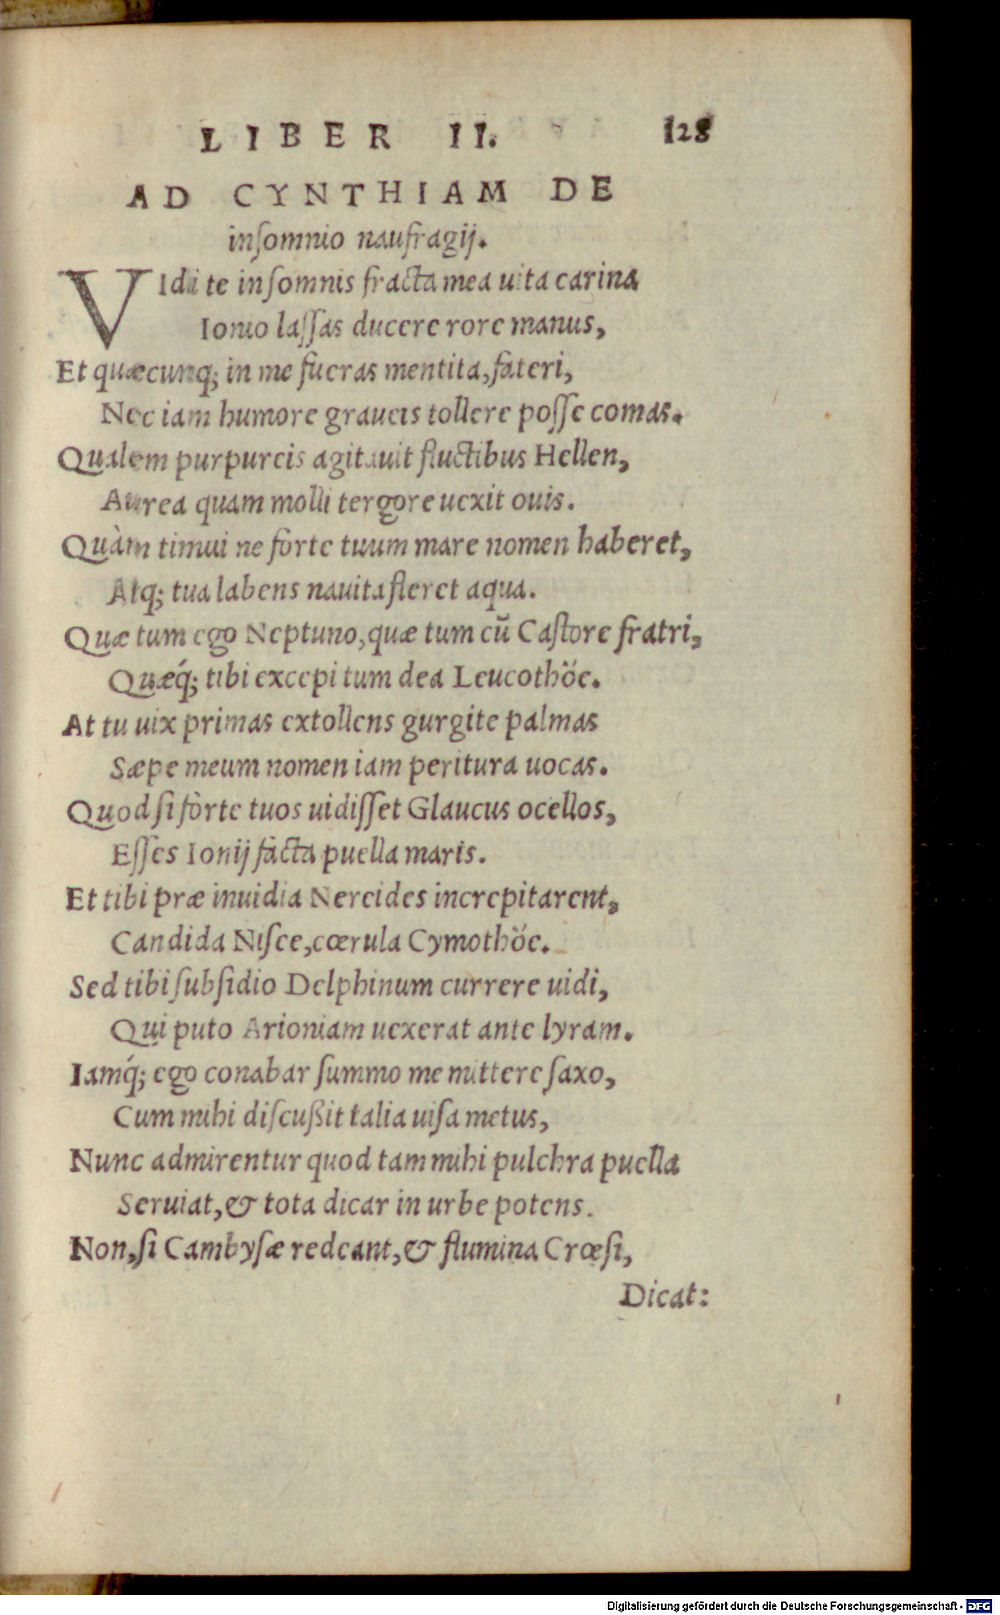 LIBER II. 128
AD CYNTHIAM DE
insomnio naufragij.
VIdi te in somnis fracta mea uita carina
Ionio lassas ducere rore manus,
Et quæcunq; in me fueras mentita, fateri,
Nec iam humore graueis tollere posse comas.
Qualem purpureis agitauit fluctibus Hellen,
Aurea quam molli tergore uexit ouis.
Quàm timui ne forte tuum mare nomen haberet,
Atq; tua labens nauita fleret aqua.
Quæ tum ego Neptuno, quæ tum cũ Castore fratri,
Quæq́; tibi excepi tum dea Leucothöe.
At tu uix primas extollens gurgite palmas
Sæpe meum nomen iam peritura uocas.
Quod si forte tuos uidisset Glaucus ocellos,
Esses Ionij facta puella maris.
Et tibi præ inuidia Nereides increpitarent,
Candida Nisce, cœrula Cymothöe.
Sed tibi subsidio Delphinum currere uidi,
Qui puto Arioniam uexerat ante lyram.
Iamq́; ego conabar summo me mittere saxo,
Cum mihi discußit talia uisa metus,
Nunc admirentur quod tam mihi pulchra puella
Seruiat, & tota dicar in urbe potens.
Non, si Cambysæ redeant, & flumina Crœsi,
Dicat:
Digitalisierung gefördert durch die Deutsche Forschungsgemeinschaft - DFG